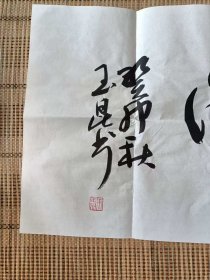 癸卯秋
玉昆书